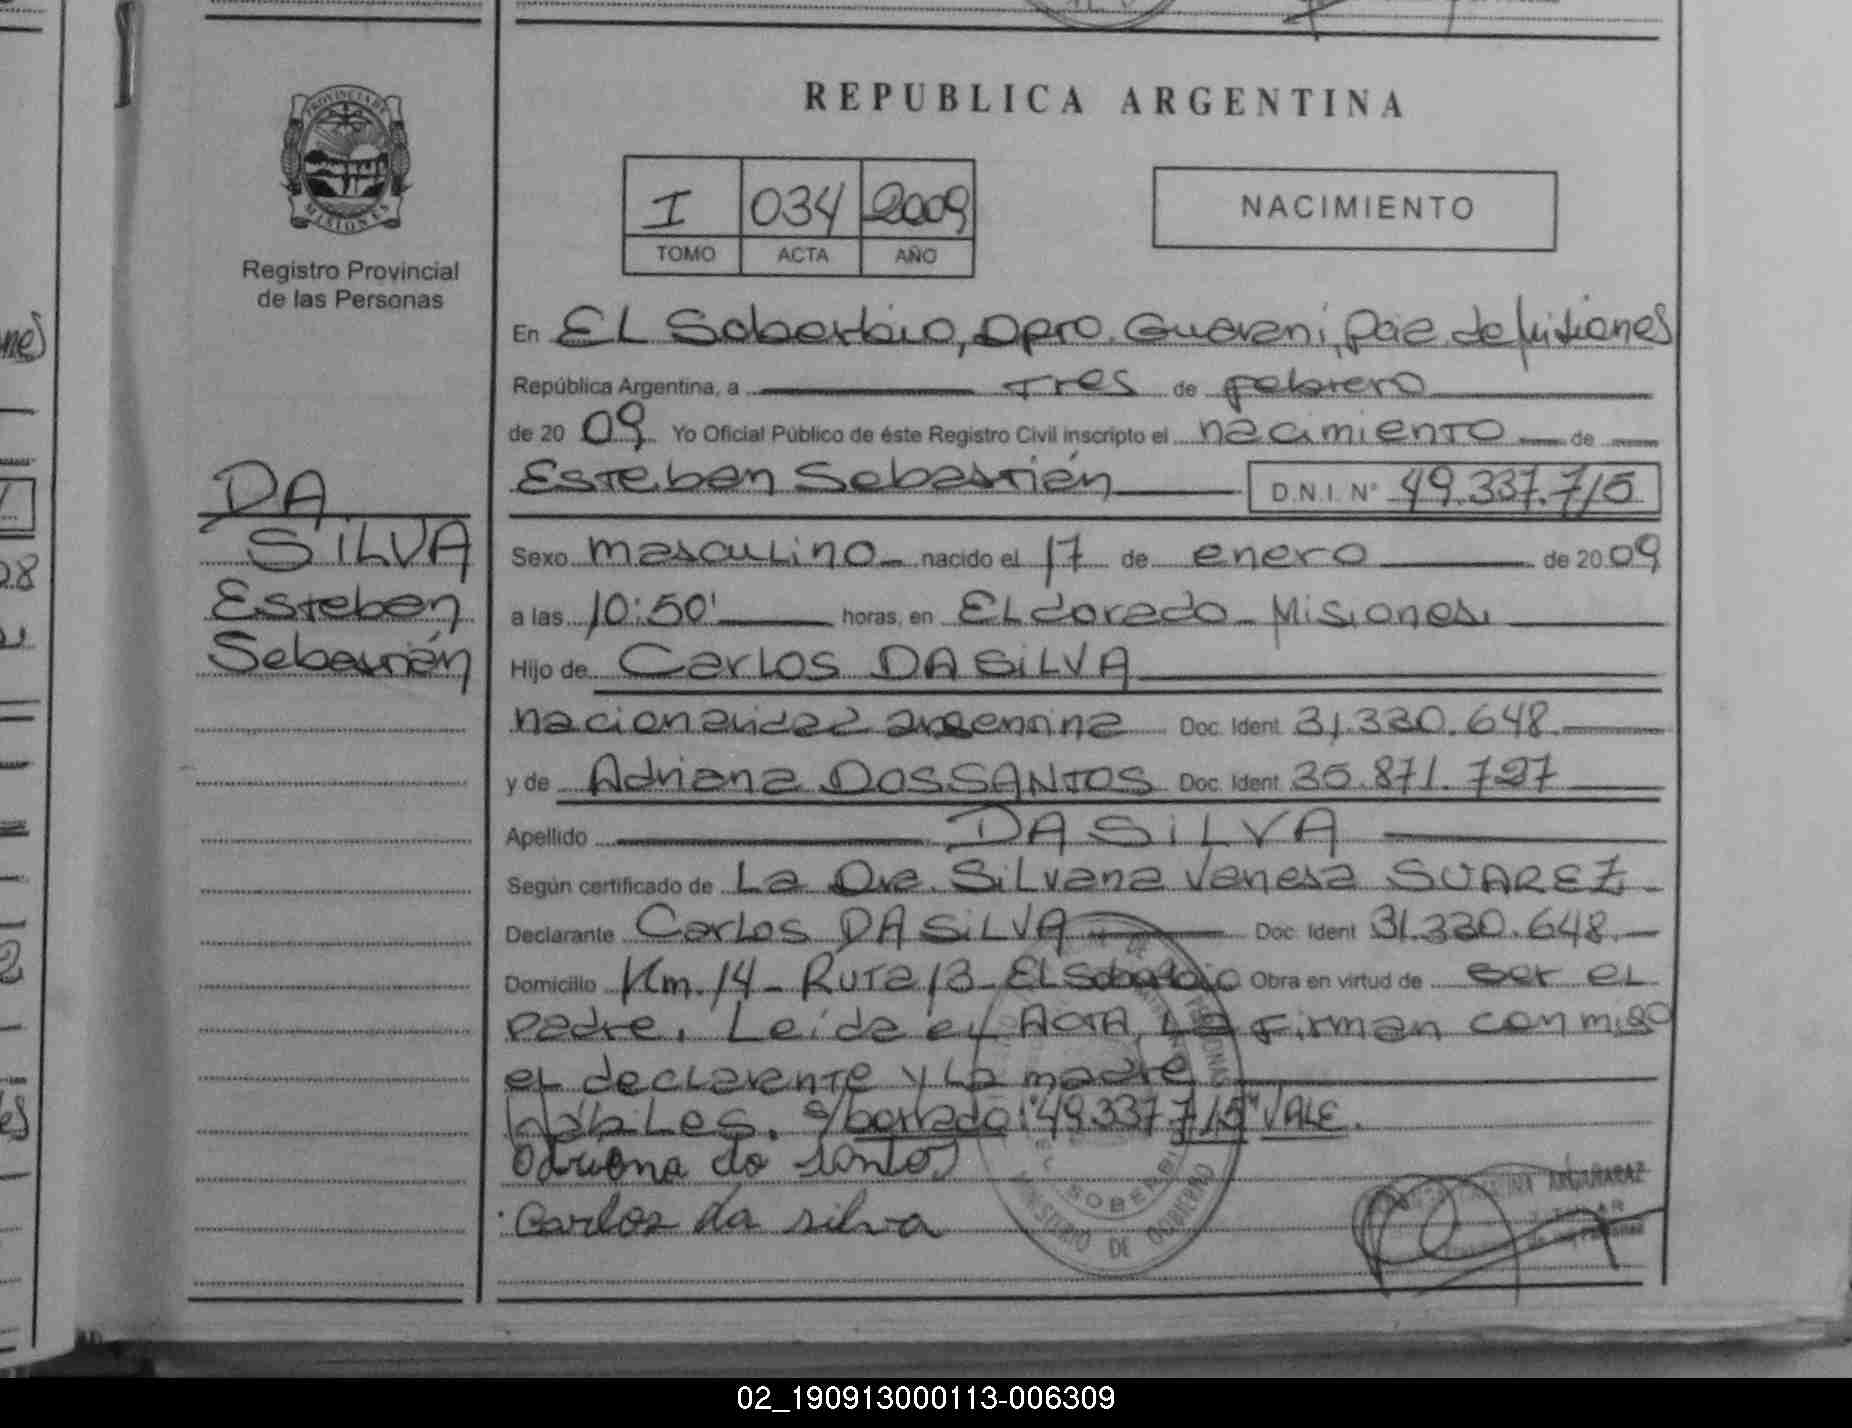 REPUBLICA ARGENTINA
PROVINCIA DE
MISIONES
Registro Provincial
de las Personas
I 034 2009
TOMO ACTA AÑO
NACIMIENTO
En EL Soberbio, Dpto. Guarani, Pcia. de Misiones
República Argentina, a Tres de febrero
de 20 09 Yo Oficial Público de éste Registro Civil inscripto el nacimiento de
Esteban Sebastián D.N.I. Nº 49.337.715
DA
SiLVA
Esteban
Sebastián
Sexo masculino nacido el 17 de enero de 20 09
a las 10:50' horas, en ELdorado - Misiones
Hijo de Carlos DA SiLVA
nacionalidad argentina Doc. Ident. 31.330.648
y de Adriana DOS SANTOS Doc. Ident. 35.871.727
Apellido DA SiLVA
Según certificado de La Dra. SiLvana Vanesa SUAREZ
Declarante Carlos DA SiLVA Doc. Ident 31.330.648
Domicilio Km. 14 - Ruta 13 - EL Soberbio Obra en virtud de ser el
padre. Leída el ACTA, La firman conmigo
el declarante y La madre
hábiles. s/borrado: "49.337.715" VALE.
Adriana do santos
Carlos da silva
SOBERBIO
MINISTERIO DE GOBIERNO
02_190913000113-006309